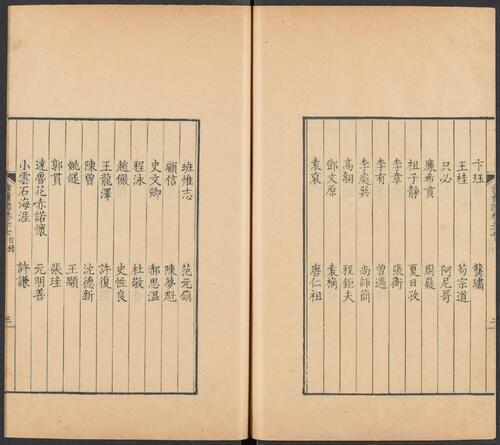 卞珏 龔璛
王桂 荀宗道
只必 阿尼哥
廉希貢 周巖
祖子靜 夏日孜
李章 張衡
李有 曾遇
李處巽 尚師簡
高翿 程鉅夫
鄧文原 袁桷
袁裒 唐仁祖
班惟志 范元鎮
顧信 陳夢魁
史文卿 郝思溫
程泳 杜敬
趙儼 史性良
王龍澤 許復
陳曾 沈德新
姚燧 王顒
郭貫 張珪
達魯花赤諾懷 元明善
小雲石海涯 許謙